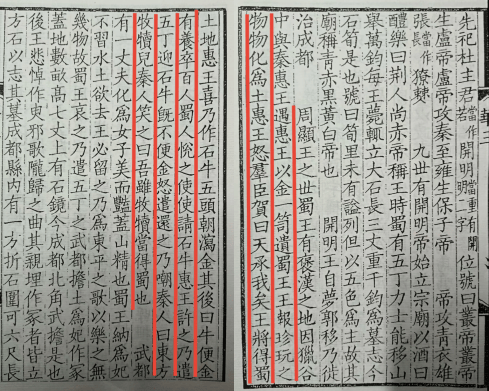 先祀杜主君若當作開明二字當重有開位號曰叢帝叢帝
生盧帝盧帝攻秦至雍生保子帝　帝攻青衣雄
張當作長獠僰　九世有開明帝始立宗廟以酒曰
醴樂曰荆人尚赤帝稱王時蜀有五丁力士能移山
舉萬鈞每王薨輒立大石長三丈重千鈞爲墓志今
石筍是也號曰筍里未有諡列但以五色爲主故其
廟稱青赤黑黃白帝也　開明王自夢郭移乃徙
治成都　周顯王之世蜀王有褒漢之地因獵谷
中與秦惠王遇惠王以金一笥遺蜀王王報珍玩之
物物化爲土惠王怒羣臣賀曰天承我矣王將得蜀
土地惠王喜乃作石牛五頭朝瀉金其後曰牛便金
有養卒百人蜀人悅之使使請石牛惠王許之乃遣
五丁迎石牛旣不便金怒遣還之乃嘲秦人曰東方
牧犢兒秦人笑之曰吾雖牧犢當得蜀也　武都
有一丈夫化爲女子美而豔蓋山精也蜀王納爲妃
不習水土欲去王必留之乃爲東平之歌以樂之無
幾物故蜀王哀之乃遣五丁之武都擔土爲妃作冢
蓋地數畝高七丈上有石鏡今成都北角武擔是也
後王悲悼作臾邪歌隴歸之曲其親埋作冢者皆立
方石以志其墓成都縣內有一方折石圍可六尺長
華三